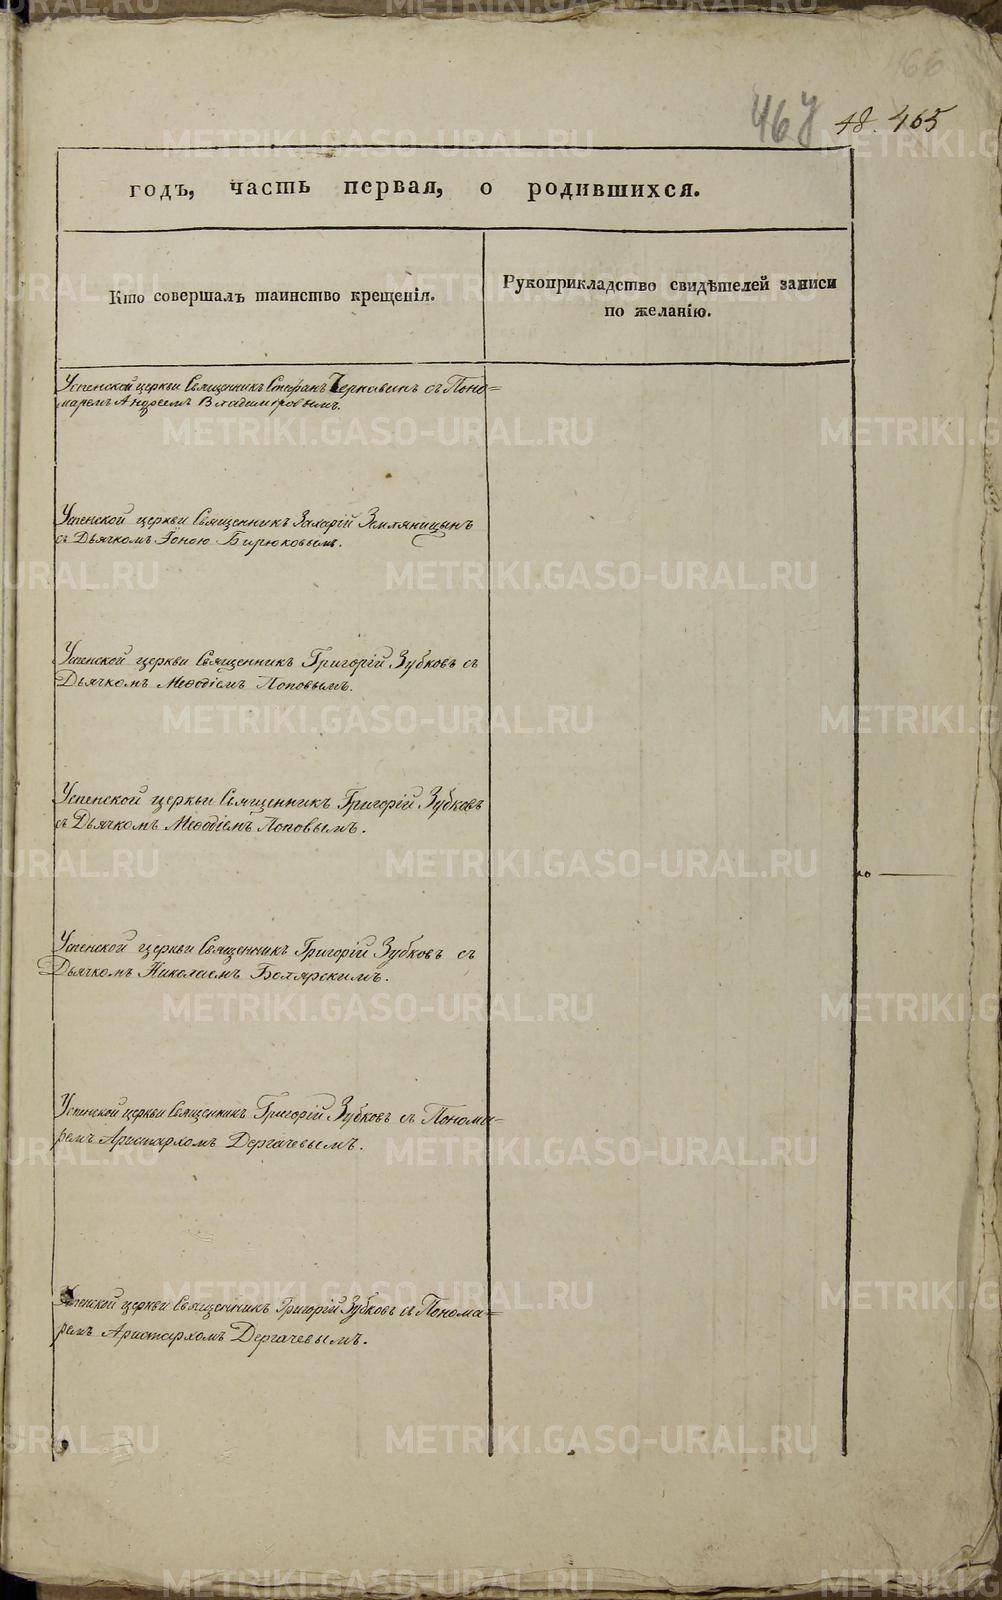 466
467 48. 465
годъ, часть первая, о родившихся.
Кто совершалъ таинство крещенія.
Рукоприкладство свидѣтелей записи
по желанію.
Успенской церкви Священникъ Стефанъ Чернавинъ съ Поно=
маремъ Андреемъ Владимировымъ.
Успенской церкви Священникъ Захарій Земляницынъ
съ Дьячкомъ Іоною Бирюковымъ.
Успенской церкви Священникъ Григорій Зубковъ съ
Дьячкомъ Меѳодіемъ Поповымъ.
Успенской церкви Священникъ Григорій Зубковъ
съ Дьячкомъ Меѳодіемъ Поповымъ.
Успенской церкви Священникъ Григорій Зубковъ съ
Дьячкомъ Николаемъ Боярскимъ.
Успенской церкви Священникъ Григорій Зубковъ съ Понома=
ремъ Аристархомъ Дергачевымъ.
Успенской церкви Священникъ Григорій Зубковъ съ Понома=
ремъ Аристархомъ Дергачевымъ.
METRIKI.GASO-URAL.RU